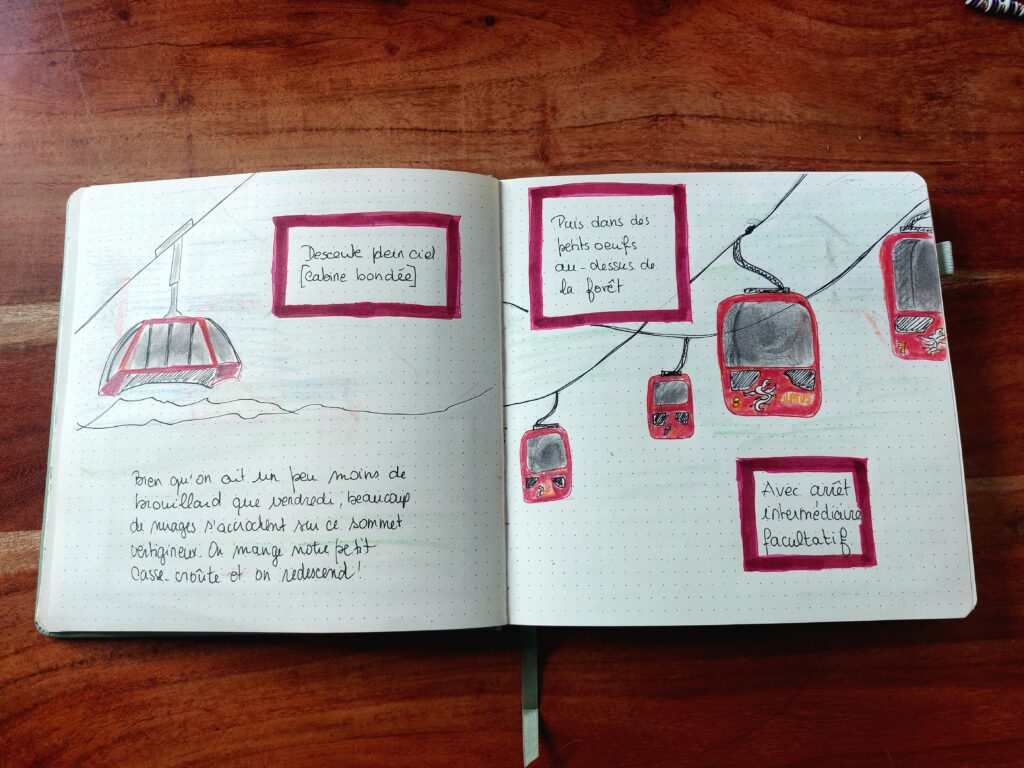 Descente plein ciel
[cabine bondée]
Bien qu'on ait un peu moins de
brouillard que vendredi, beaucoup
de nuages s'accrochent sur ce sommet
vertigineux. On mange notre petit
casse-croûte et on redescend!
Puis dans des
petits oeufs
au-dessus de
la forêt
8
7
Avec arrêt
intermédiaire
facultatif